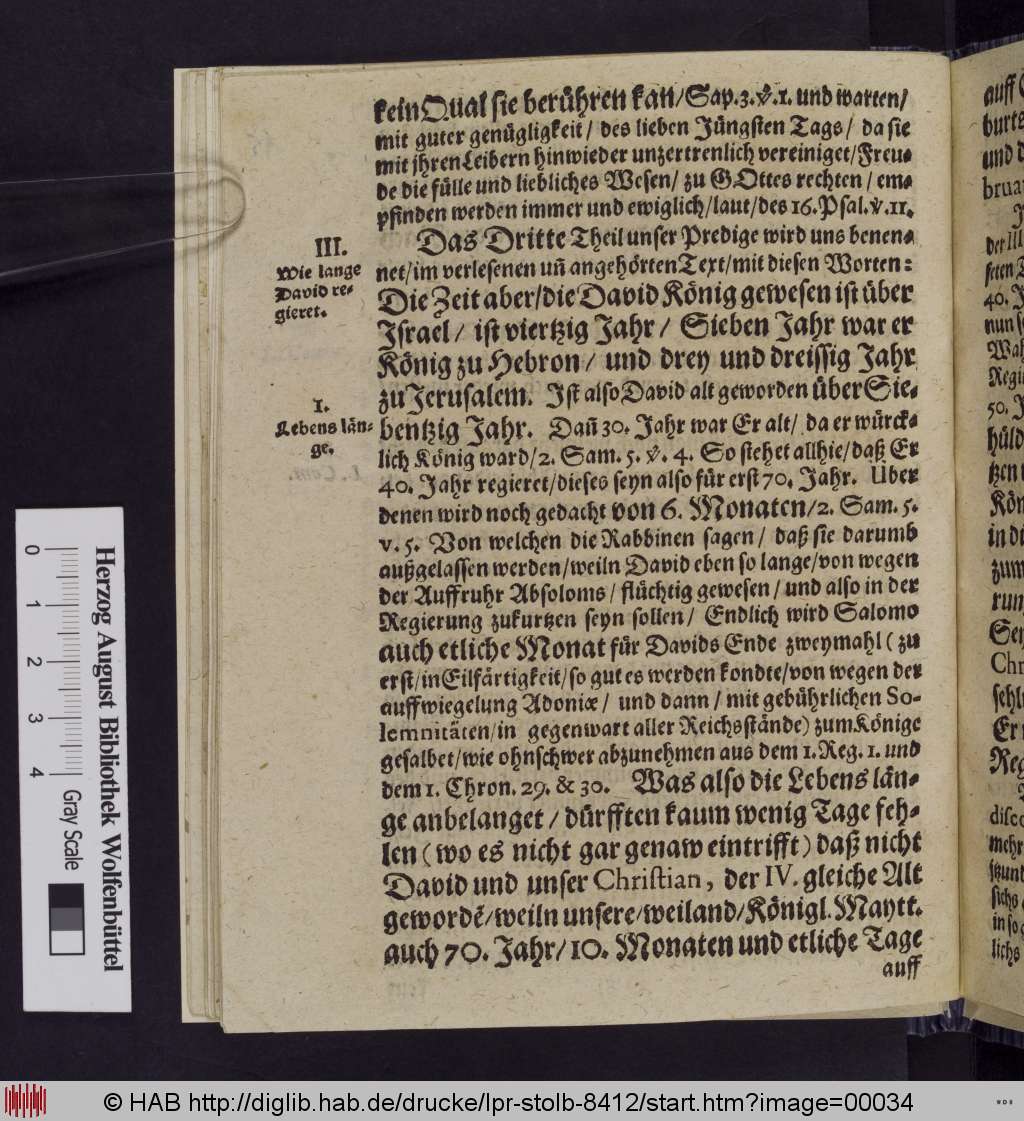 kein Qual sie berühren kan/Sap.3.v.1. und warten/
mit guter genügligkeit/ des lieben Jüngsten Tags/ da sie
mit jhren Leibern hinwieder unzertrenlich vereiniget/Freu-
de die fülle und liebliches Wesen/ zu GOttes rechten/ em-
pfinden werden immer und ewiglich/laut/des 16.Psal.v.11.
III.
Wie lange
David re-
gieret.
Das Dritte Theil unser Predige wird uns benen-
net/im verlesenen uñ angehörten Text/mit diesen Worten:
Die Zeit aber/die David König gewesen ist über
Israël/ ist viertzig Jahr/ Sieben Jahr war er
König zu Hebron/ und drey und dreissig Jahr
zu Jerusalem. Ist also David alt geworden über Sie-
I.
Lebens län-
ge.
bentzig Jahr. Dañ 30. Jahr war Er alt/ da er würck-
lich König ward/2. Sam. 5. v. 4. So stehet allhie/daß Er
40. Jahr regieret/dieses seyn also für erst 70. Jahr. Über
denen wird noch gedacht von 6. Monaten/2. Sam. 5.
v. 5. Von welchen die Rabbinen sagen/ daß sie darumb
außgelassen werden/weiln David eben so lange/von wegen
der Auffruhr Absoloms/ flüchtig gewesen/ und also in der
Regierung zukurtzen seyn sollen/ Endlich wird Salomo
auch etliche Monat für Davids Ende zweymahl (zu
erst/in Eilfärtigkeit/so gut es werden kondte/von wegen der
auffwiegelung Adoniæ/ und dann/ mit gebührlichen So-
lemnitäten/in gegenwart aller Reichsstände) zum Könige
gesalbet/wie ohnschwer abzunehmen aus dem 1.Reg. 1. und
dem 1. Chron. 29. & 30. Was also die Lebens län-
ge anbelanget/ dürfften kaum wenig Tage feh-
len (wo es nicht gar genaw eintrifft) daß nicht
David und unser Christian, der IV. gleiche Alt
gewordẽ/weiln unsere/weiland/Königl. Maytt.
auch 70. Jahr/10. Monaten und etliche Tage
auff
auff
burts
und d
bruar
40. J
nun se
Regi
50. J
hüld
tzen
Kön
in
zum
run
Sey
Chr
sehl
Er
Reg
disco
mehr
sichs
in so
lichs
0 1 2 3 4
Herzog August Bibliothek Wolfenbüttel
Gray Scale
© HAB http://diglib.hab.de/drucke/lpr-stolb-8412/start.htm?image=00034